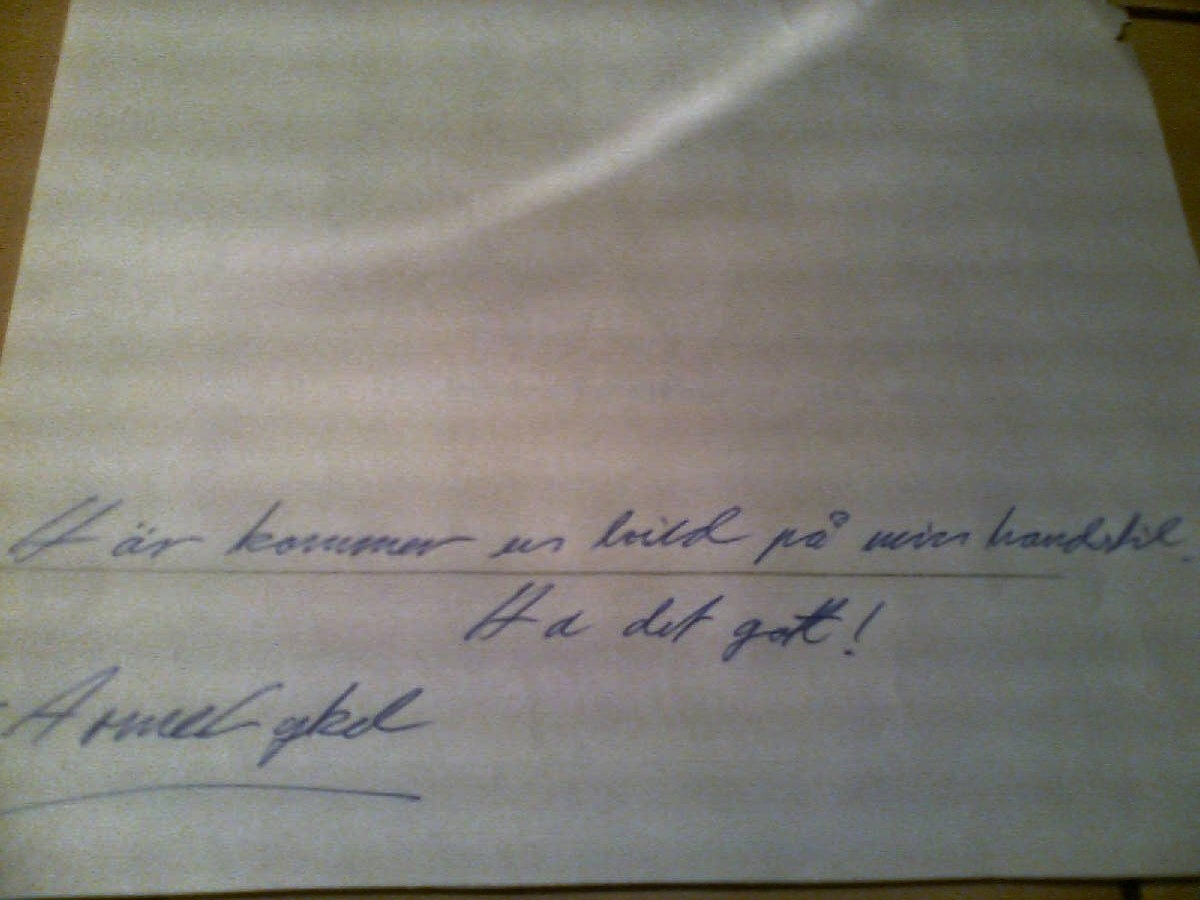 Här kommer en bild på min handstil.
Ha det gott!